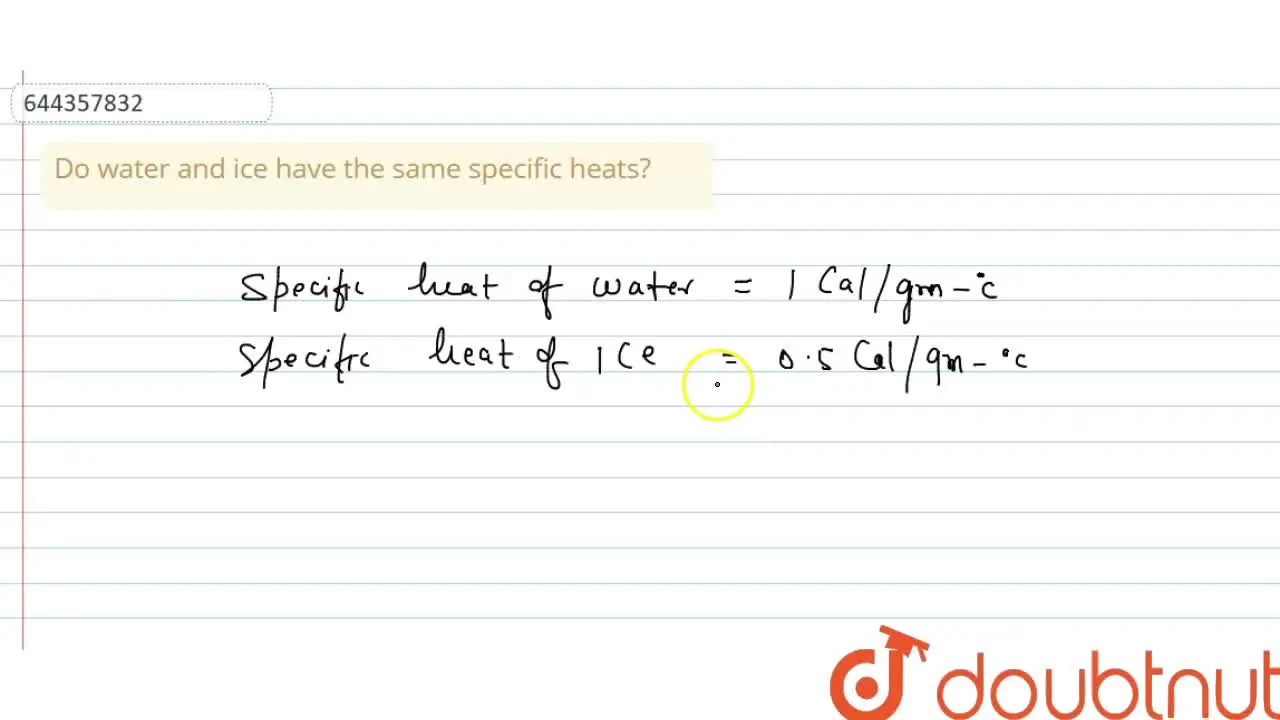 644357832
Do water and ice have the same specific heats?
Specific heat of water = 1 Cal/gm-°c
Specific heat of ICe = 0.5 Cal/gm-°c
doubtnut